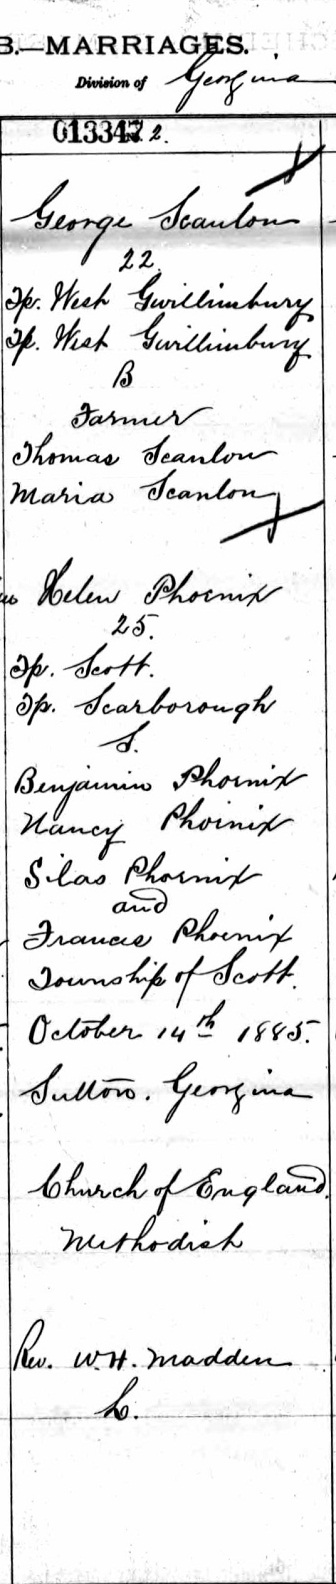 B.—MARRIAGES.
Division of Georgina
013342 2.
George Scanlon
22
Tp. West Gwillimbury
Tp. West Gwillimbury
B
Farmer
Thomas Scanlon
Maria Scanlon
Helen Phoenix
25.
Tp. Scott.
Tp. Scarborough
S.
Benjamin Phoenix
Nancy Phoenix
Silas Phoenix
and
Frances Phoenix
Township of Scott.
October 14th 1885.
Sutton. Georgina
Church of England.
Methodist
Rev. W.H. Madden
L.